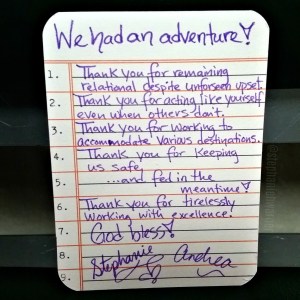 We had an adventure!
1. Thank you for remaining
relational despite unforseen upset.
2. Thank you for acting like yourself
even when others don't.
3. Thank you for working to
accommodate various destinations.
4. Thank you for keeping
us safe
5. ...and fed in the
meantime!
6. Thank you for tirelessly
working with excellence.
7. God bless!
8. Stephanie Andrea
9.